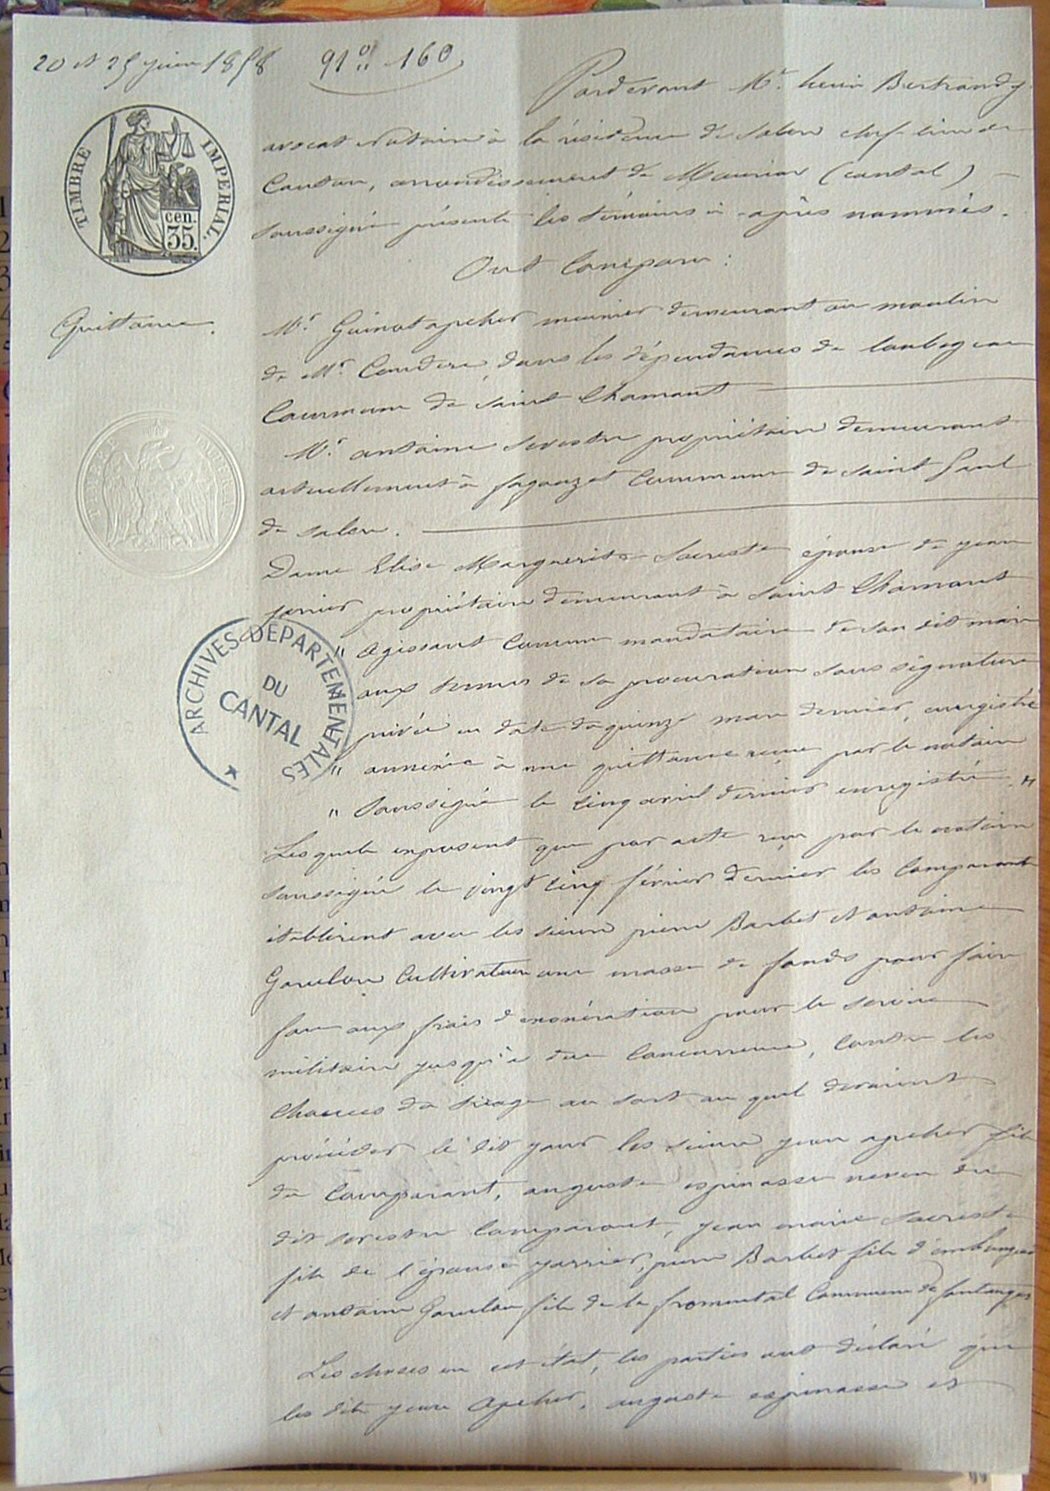 20 et 25 juin 1858
91 160
TIMBRE IMPERIAL.
cen.
35.
Pardevant Mr. henri Bertrandy
avocat Notaire à la résidence de Salers chef lieu de
Canton, arrondissement de Mauriac (cantal)
soussigné présents les témoins ci-après nommés.
Ont Comparu :
Quittance.
Mr. Guinot apcher meunier demeurant au moulin
de Mr. Couderc, dans les dépendances de
Commune de saint Chamant
Mr. antoine propriétaire demeurant
actuellement à Commune de saint Paul
de salers.
Dame Elise Marguerite épouse de jean
propriétaire demeurant à saint Chamant
" Agissant Comme mandataire de son dit mari
aux termes de sa procuration sous signature
privée en date du quinze mars dernier, enregistré
" annexée à une quittance reçue par le notaire
" Soussigné le cinq avril dernier enregistré "
Lesquels exposent que par acte reçu par le notaire
soussigné le vingt cinq février dernier les Comparants
établirent avec les sieurs pierre Barbet et antoine
Cultivateurs une masse de fonds pour faire
face aux frais d'exonération pour le service
militaire jusqu'à due Concurrence, Contre les
Chances du tirage au sort au quel devaient
procéder le dit jour les sieurs jean apcher fils
du Comparant, auguste espinasse neveu du
dit Comparant, jean marie
fils de l'épouse, pierre Barbet fils
et antoine fils de le fromental Commune de fontanges
Les choses en cet état, les parties ont déclaré que
les dits jean Apcher, auguste espinasse et
ARCHIVES DEPARTEMENTALES
DU
CANTAL